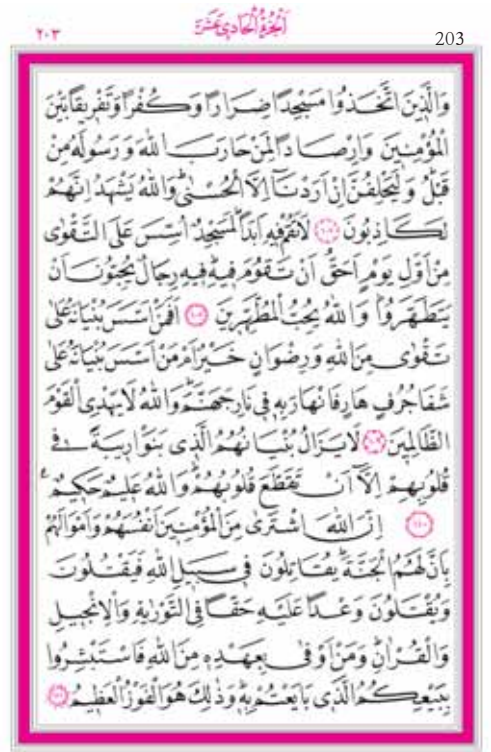 اَلْجُزْءُ الْحَادِي عَشَرَ
٢٠٣
203
وَالَّذِينَ اتَّخَذُوا مَسْجِدًا ضِرَارًا وَكُفْرًا وَتَفْرِيقًا بَيْنَ
الْمُؤْمِنِينَ وَاِرْصَادًا لِمَنْ حَارَبَ اللّٰهَ وَرَسُولَهُ مِنْ
قَبْلُ وَلَيَحْلِفُنَّ اِنْ اَرَدْنَٓا اِلَّا الْحُسْنٰى وَاللّٰهُ يَشْهَدُ اِنَّهُمْ
لَكَاذِبُونَ ١٠٧ لَا تَقُمْ فِيهِ اَبَدًا لَمَسْجِدٌ اُسِّسَ عَلَى التَّقْوٰى
مِنْ اَوَّلِ يَوْمٍ اَحَقُّ اَنْ تَقُومَ فِيهِ فِيهِ رِجَالٌ يُحِبُّونَ اَنْ
يَتَطَهَّرُوا وَاللّٰهُ يُحِبُّ الْمُطَّهِّرِينَ ١٠٨ اَفَمَنْ اَسَّسَ بُنْيَانَهُ عَلٰى
تَقْوٰى مِنَ اللّٰهِ وَرِضْوَانٍ خَيْرٌ اَمْ مَنْ اَسَّسَ بُنْيَانَهُ عَلٰى
شَفَا جُرُفٍ هَارٍ فَانْهَارَ بِهِ فِي نَارِ جَهَنَّمَ وَاللّٰهُ لَا يَهْدِي الْقَوْمَ
الظَّالِمِينَ ١٠٩ لَا يَزَالُ بُنْيَانُهُمُ الَّذِي بَنَوْا رِيبَةً فِي
قُلُوبِهِمْ اِلَّٓا اَنْ تَقَطَّعَ قُلُوبُهُمْ وَاللّٰهُ عَلِيمٌ حَكِيمٌ
١١٠ اِنَّ اللّٰهَ اشْتَرٰى مِنَ الْمُؤْمِنِينَ اَنْفُسَهُمْ وَاَمْوَالَهُمْ
بِاَنَّ لَهُمُ الْجَنَّةَ يُقَاتِلُونَ فِي سَبِيلِ اللّٰهِ فَيَقْتُلُونَ
وَيُقْتَلُونَ وَعْدًا عَلَيْهِ حَقًّا فِي التَّوْرٰيةِ وَالْاِنْجِيلِ
وَالْقُرْاٰنِ وَمَنْ اَوْفٰى بِعَهْدِهِ مِنَ اللّٰهِ فَاسْتَبْشِرُوا
بِبَيْعِكُمُ الَّذِي بَايَعْتُمْ بِهِ وَذٰلِكَ هُوَ الْفَوْزُ الْعَظِيمُ ١١١